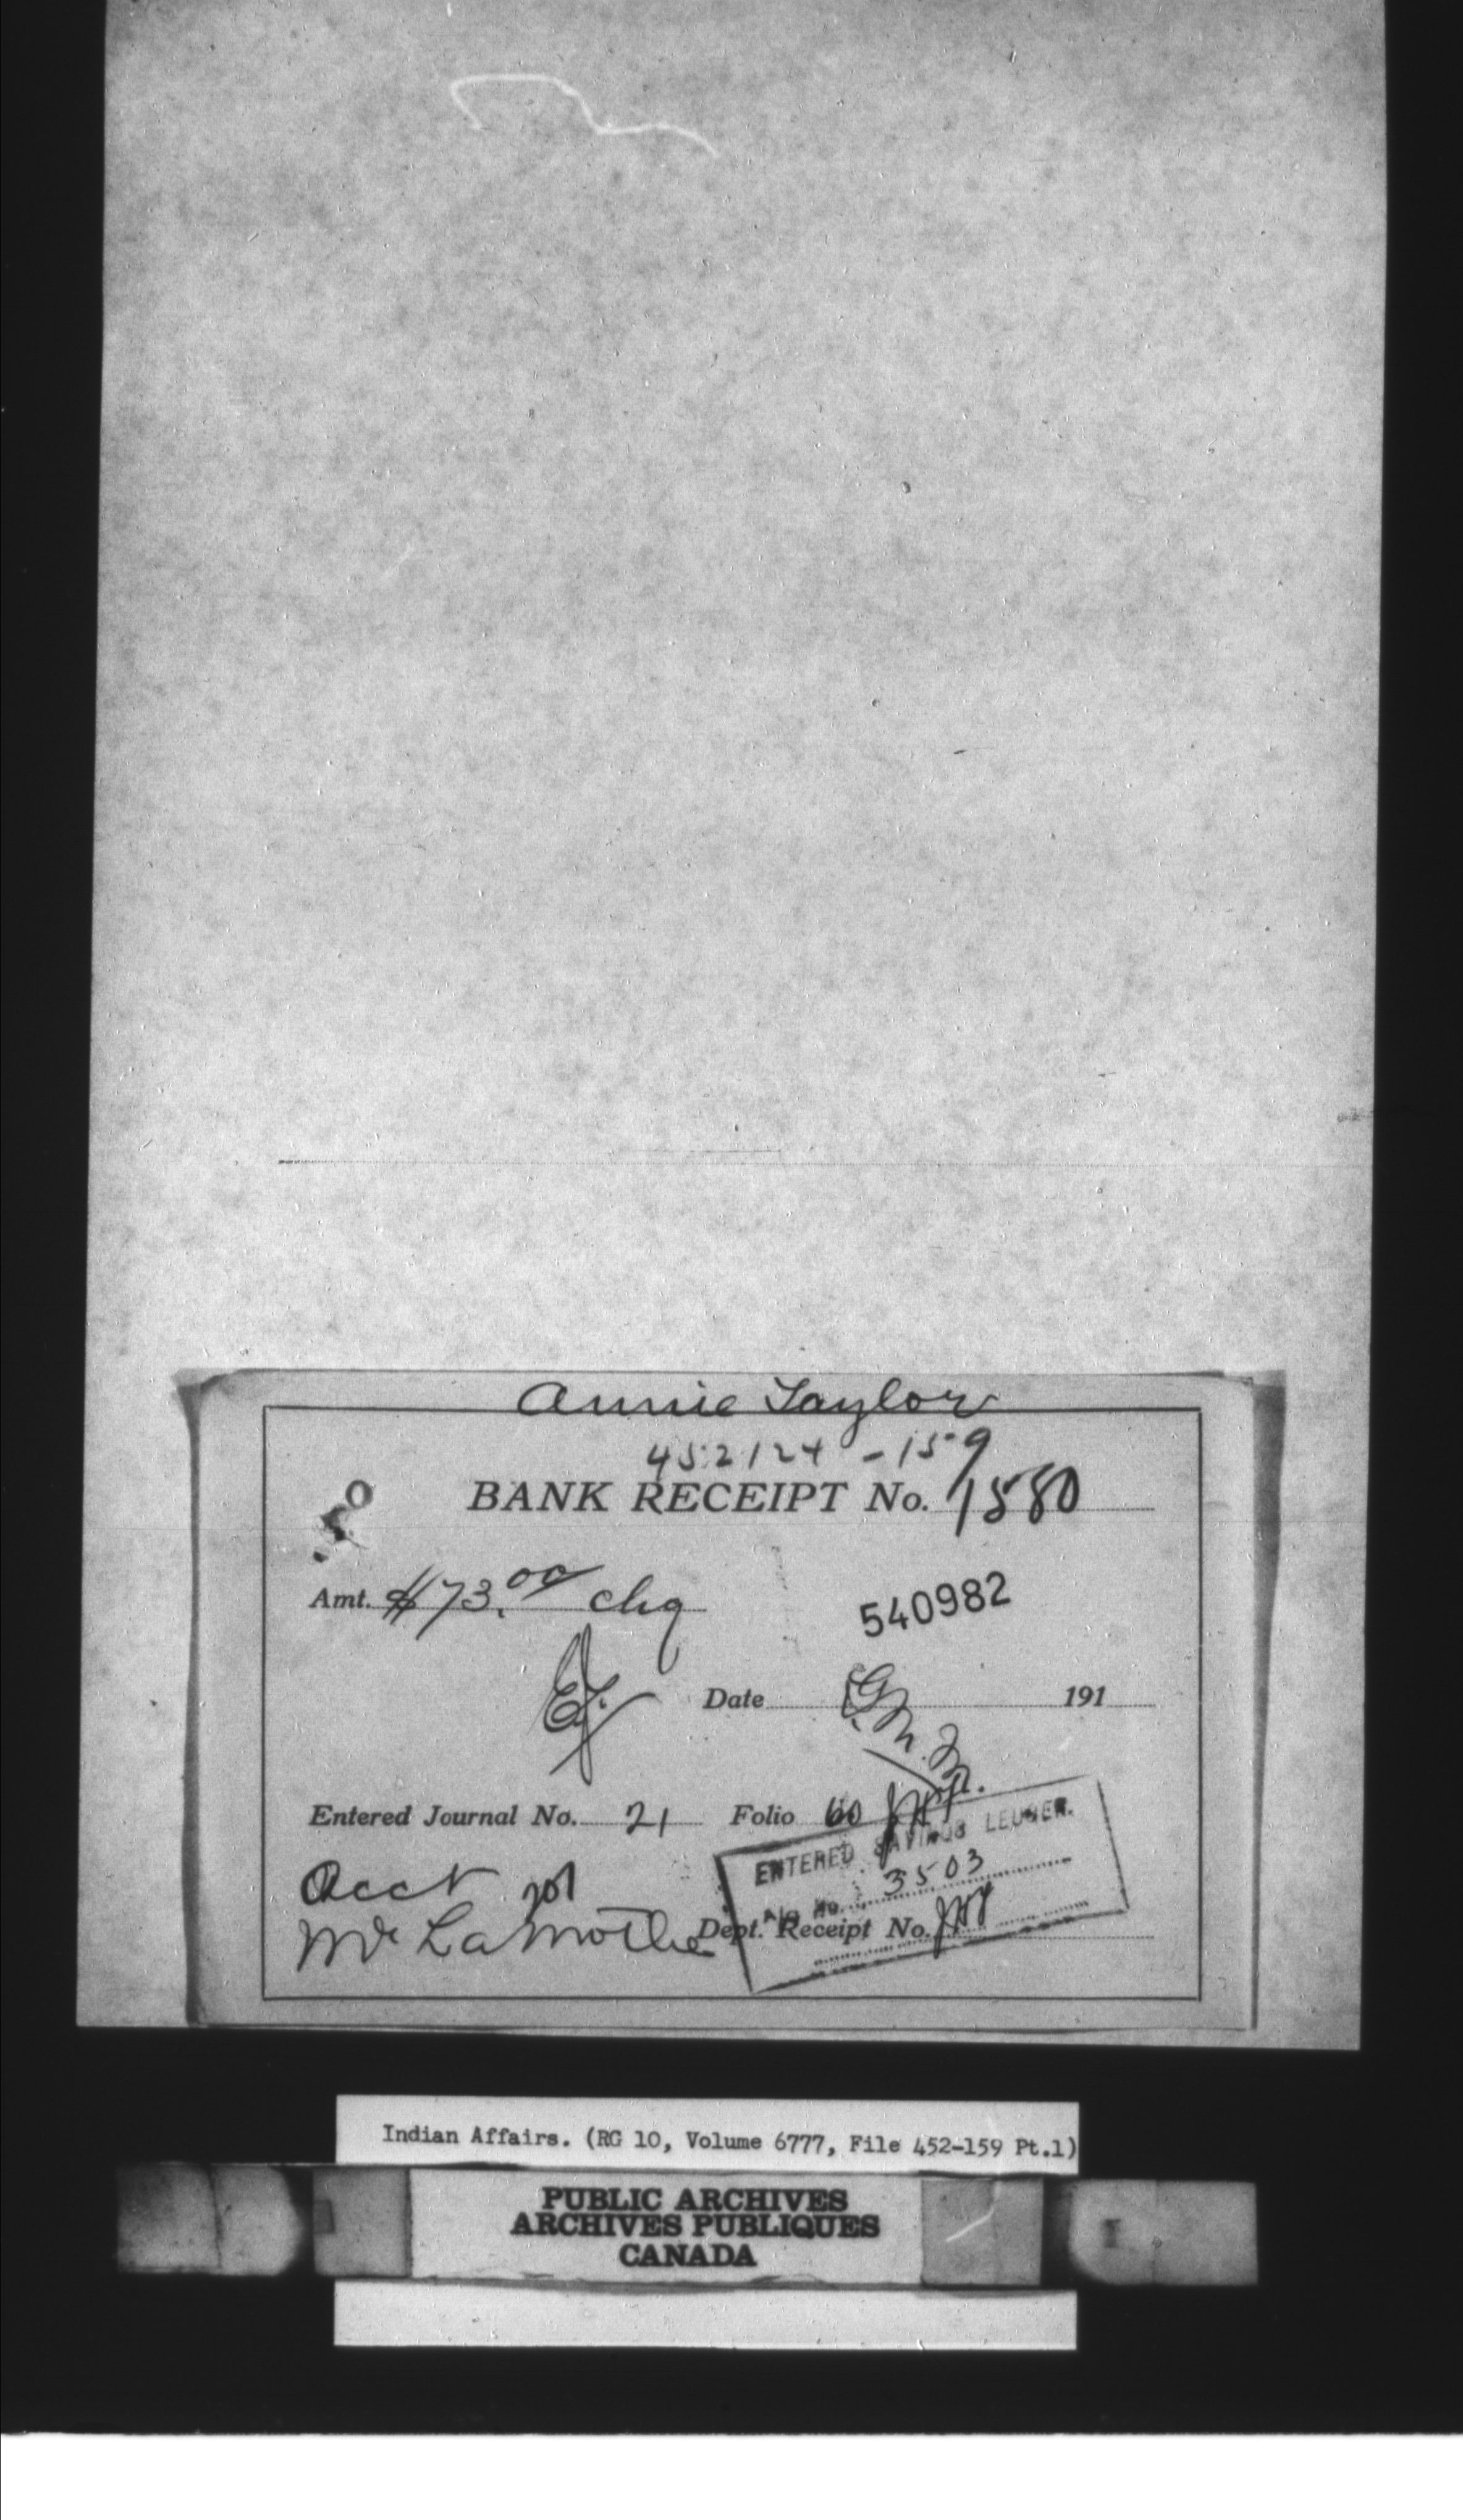 Annie Taylor
452124 - 159
BANK RECEIPT No. 1580
Amt. $73.00 chq
540982
Date 191
Entered Journal No. 21 Folio 60
ENTERED SAVINGS LEDGER.
Acct
No. 3503
Mr LaMothe
Dept. Receipt No.
Indian Affairs. (RG 10, Volume 6777, File 452-159 Pt.1)
PUBLIC ARCHIVES
ARCHIVES PUBLIQUES
CANADA